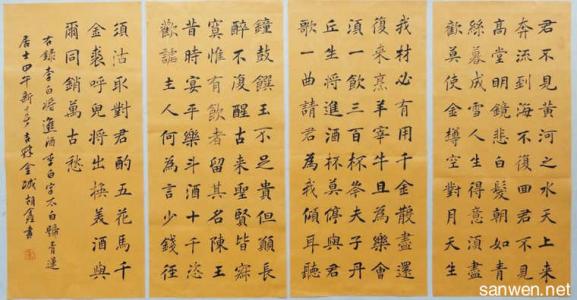 君不見黃河之水天上來
奔流到海不復回君不見
高堂明鏡悲白髮朝如青
絲暮成雪人生得意須盡
歡莫使金樽空對月天生
我材必有用千金散盡還
復來烹羊宰牛且為樂會
須一飲三百杯岑夫子丹
丘生將進酒杯莫停與君
歌一曲請君為我傾耳聽
鐘鼓饌玉不足貴但願長
醉不復醒古來聖賢皆寂
寞惟有飲者留其名陳王
昔時宴平樂斗酒十千恣
歡謔主人何為言少錢徑
須沽取對君酌五花馬千
金裘呼兒將出換美酒與
爾同銷萬古愁
右錄李白將進酒李白字太白號青蓮
居士四平金城胡書
sanwen.net